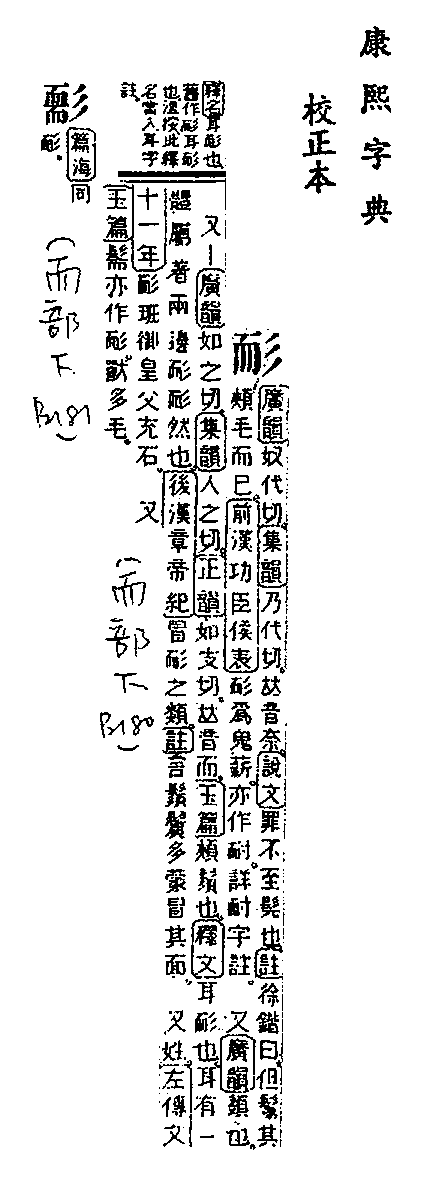 康熙字典
校正本
耏
廣韻奴代切集韻乃代切𠀤音奈說文罪不至髡也註徐鍇曰但鬄其
頰毛而已前漢功臣侯表耏爲鬼薪亦作耐詳耐字註 又廣韻類也
又丨廣韻如之切集韻人之切正韻如支切𠀤音而玉篇頰鬚也釋文耳耏也耳有一
體屬著兩邊耏耏然也後漢章帝紀冒耏之類註言鬚鬢多蒙冒其面 又姓左傳文
十一年耏班御皇父充石 又
玉篇髵亦作耏獸多毛
釋名耳耏也
舊作耐耳耏
也溫按此釋
名當入耳字
註
篇海同
耏
(而部下
B181)
(而部下
B180)